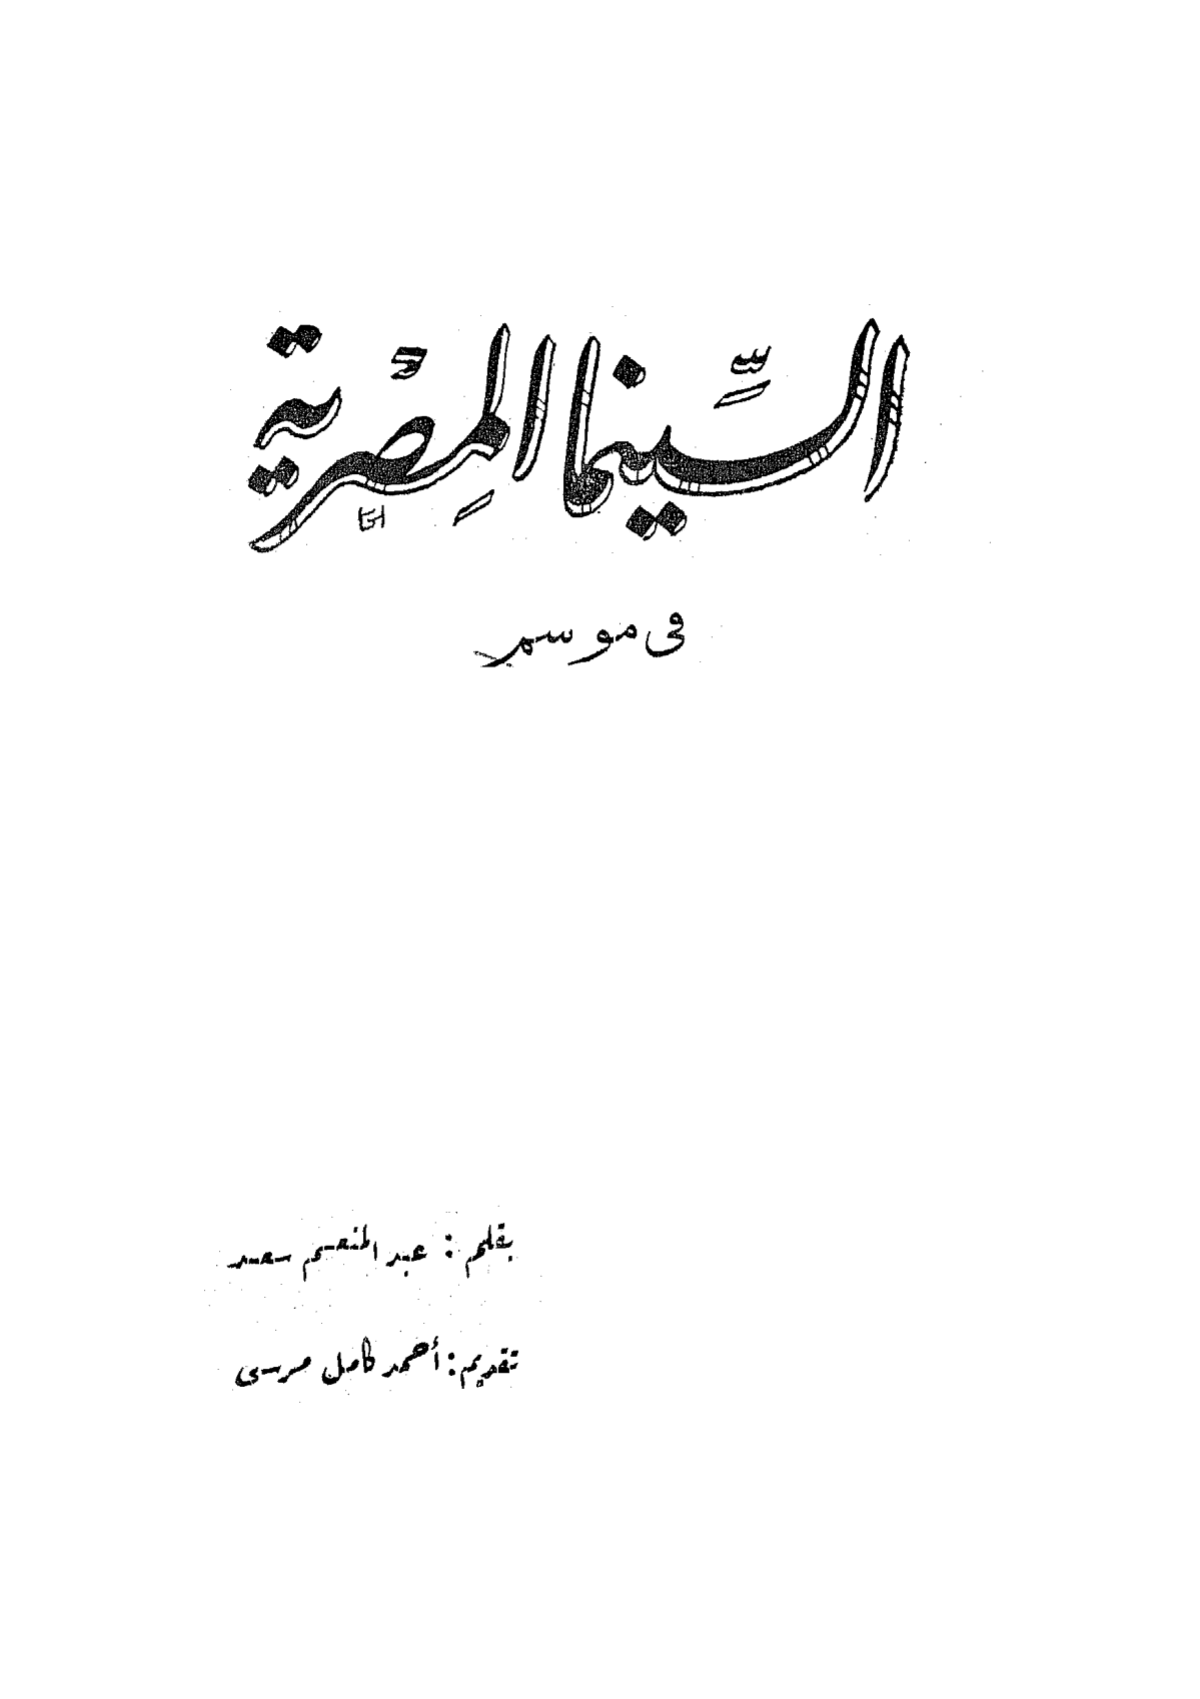 السِّينما المِصْريَّة
في موسم
بقلم : عبد المنعم سعد
تقديم : أحمد كامل مرسى